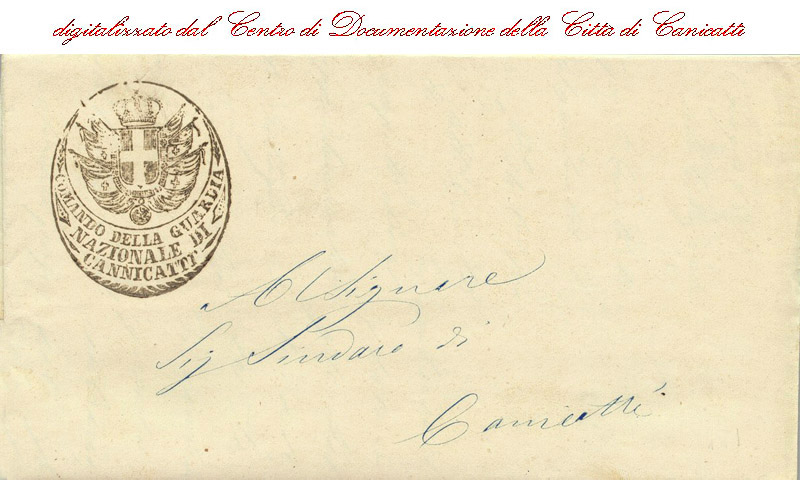 digitalizzato dal Centro di Documentazione della Città di Canicattì
COMANDO DELLA GUARDIA
NAZIONALE DI
CANNICATTI
Al Signore
Sig Sindaco di
Canicattì